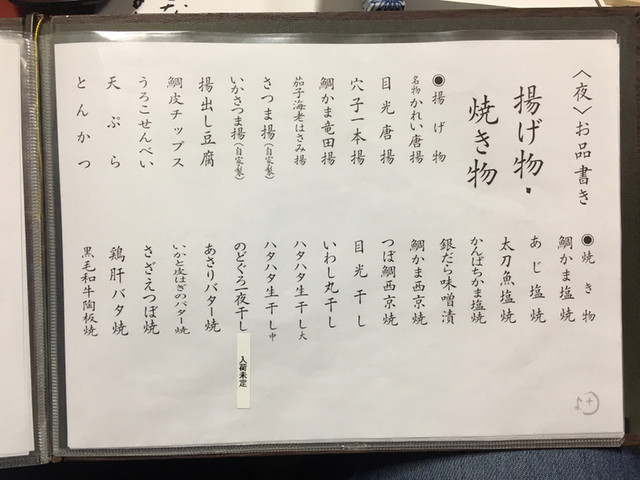 〈夜〉お品書き
揚げ物・
焼き物
◉揚げ物
名物かれい唐揚
目光唐揚
穴子一本揚
鯛かま竜田揚
茄子海老はさみ揚
さつま揚(自家製)
いかさつま揚(自家製)
揚出し豆腐
鯛皮チップス
うろこせんべい
天ぷら
とんかつ
◉焼き物
鯛かま塩焼
あじ塩焼
太刀魚塩焼
かんぱちかま塩焼
銀だら味噌漬
鯛かま西京焼
つぼ鯛西京焼
目光干し
いわし丸干し
ハタハタ生干し大
ハタハタ生干し中
のどぐろ一夜干し
入荷未定
あさりバター焼
いかと皮はぎのバター焼
さざえつぼ焼
鶏肝バタ焼
黒毛和牛陶板焼